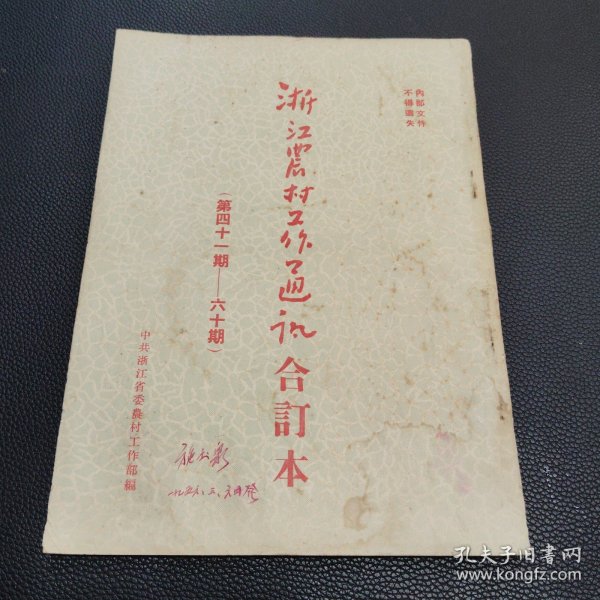 内部文件
不得遗失
浙江農村工作通訊合訂本
（第四十一期——六十期）
中共浙江省委農村工作部編
孔夫子旧书网
www.kongfz.com